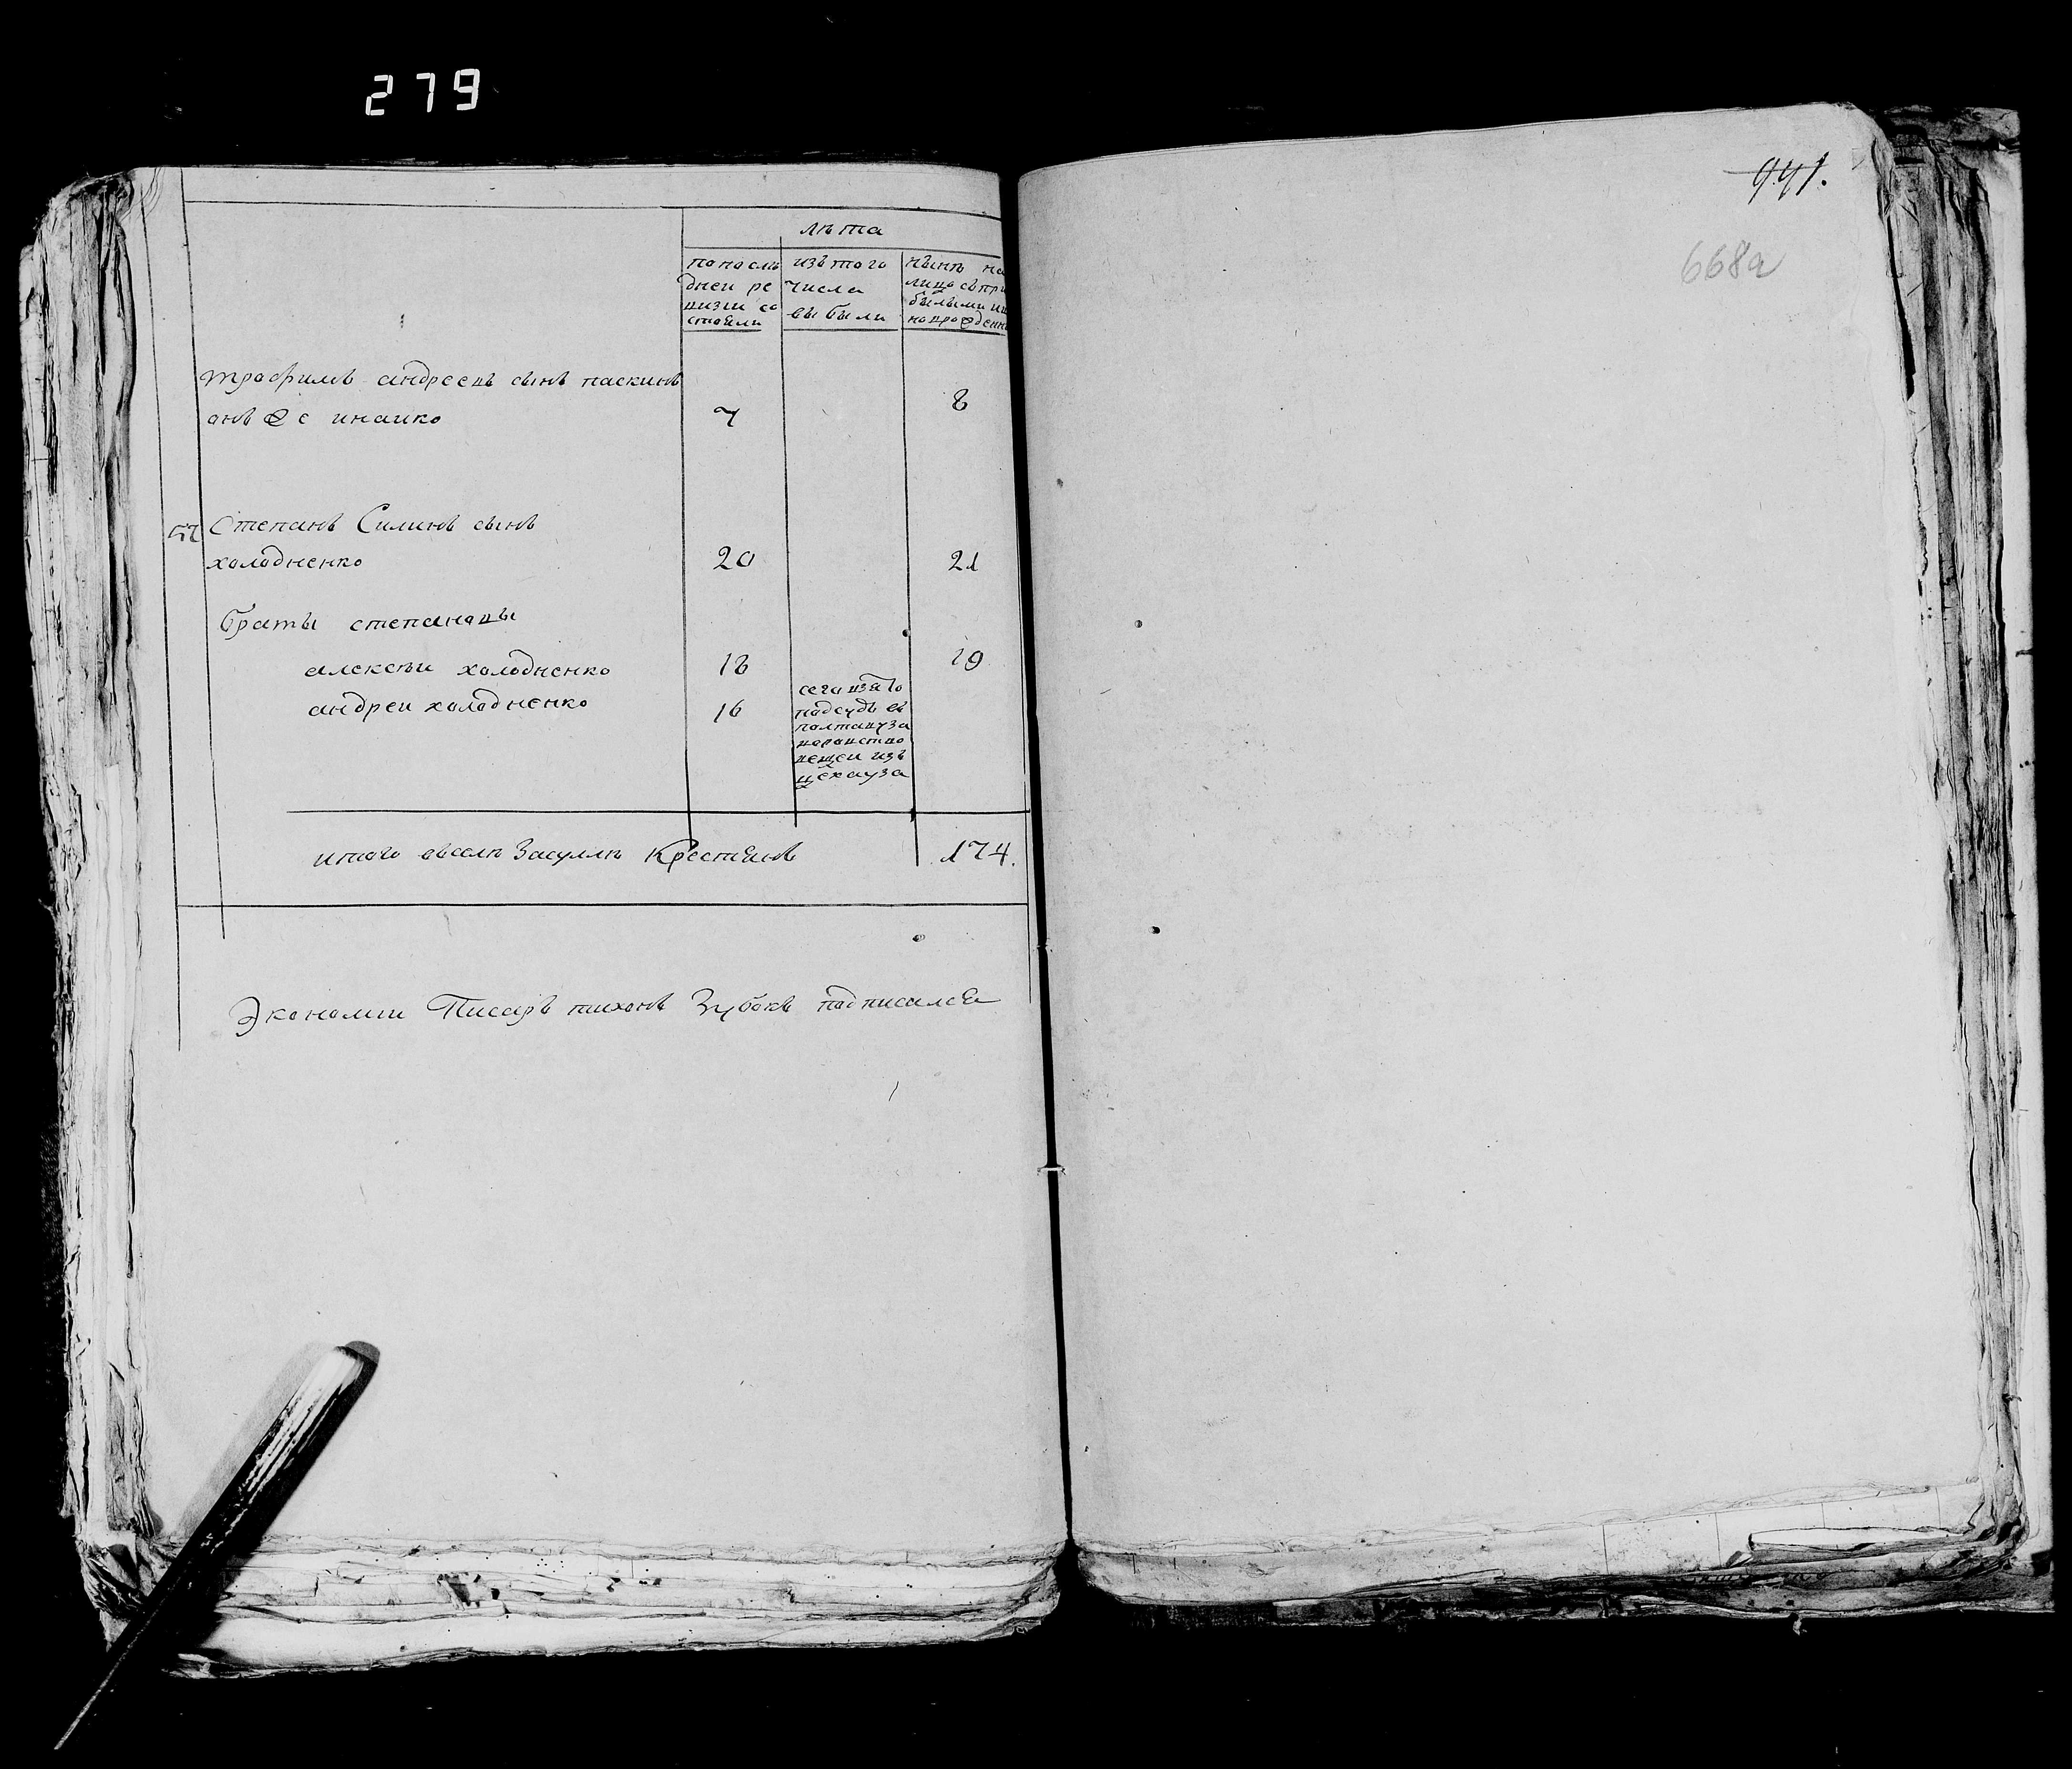 279
941.
668а
лѣта
по послѣ
дней ре
визіи со
стояли
изъ того
числа
выбыли
нынѣ на
лицо съ при
былыми и
новорожденн
трофимъ андреевъ сынъ паскинъ
онъ же инаико
7
8
57
Степанъ Силинъ сынъ
холодненко
20
21
браты степановы
алексѣи холодненко
18
19
андреи холодненко
16
сего взято
под судъ въ
полтаву за
воровство
вещеи изъ
цехауза
итого въселѣ Засуллѣ Крестянъ
174.
Экономіи Писаръ тихонъ Зубокъ подписался